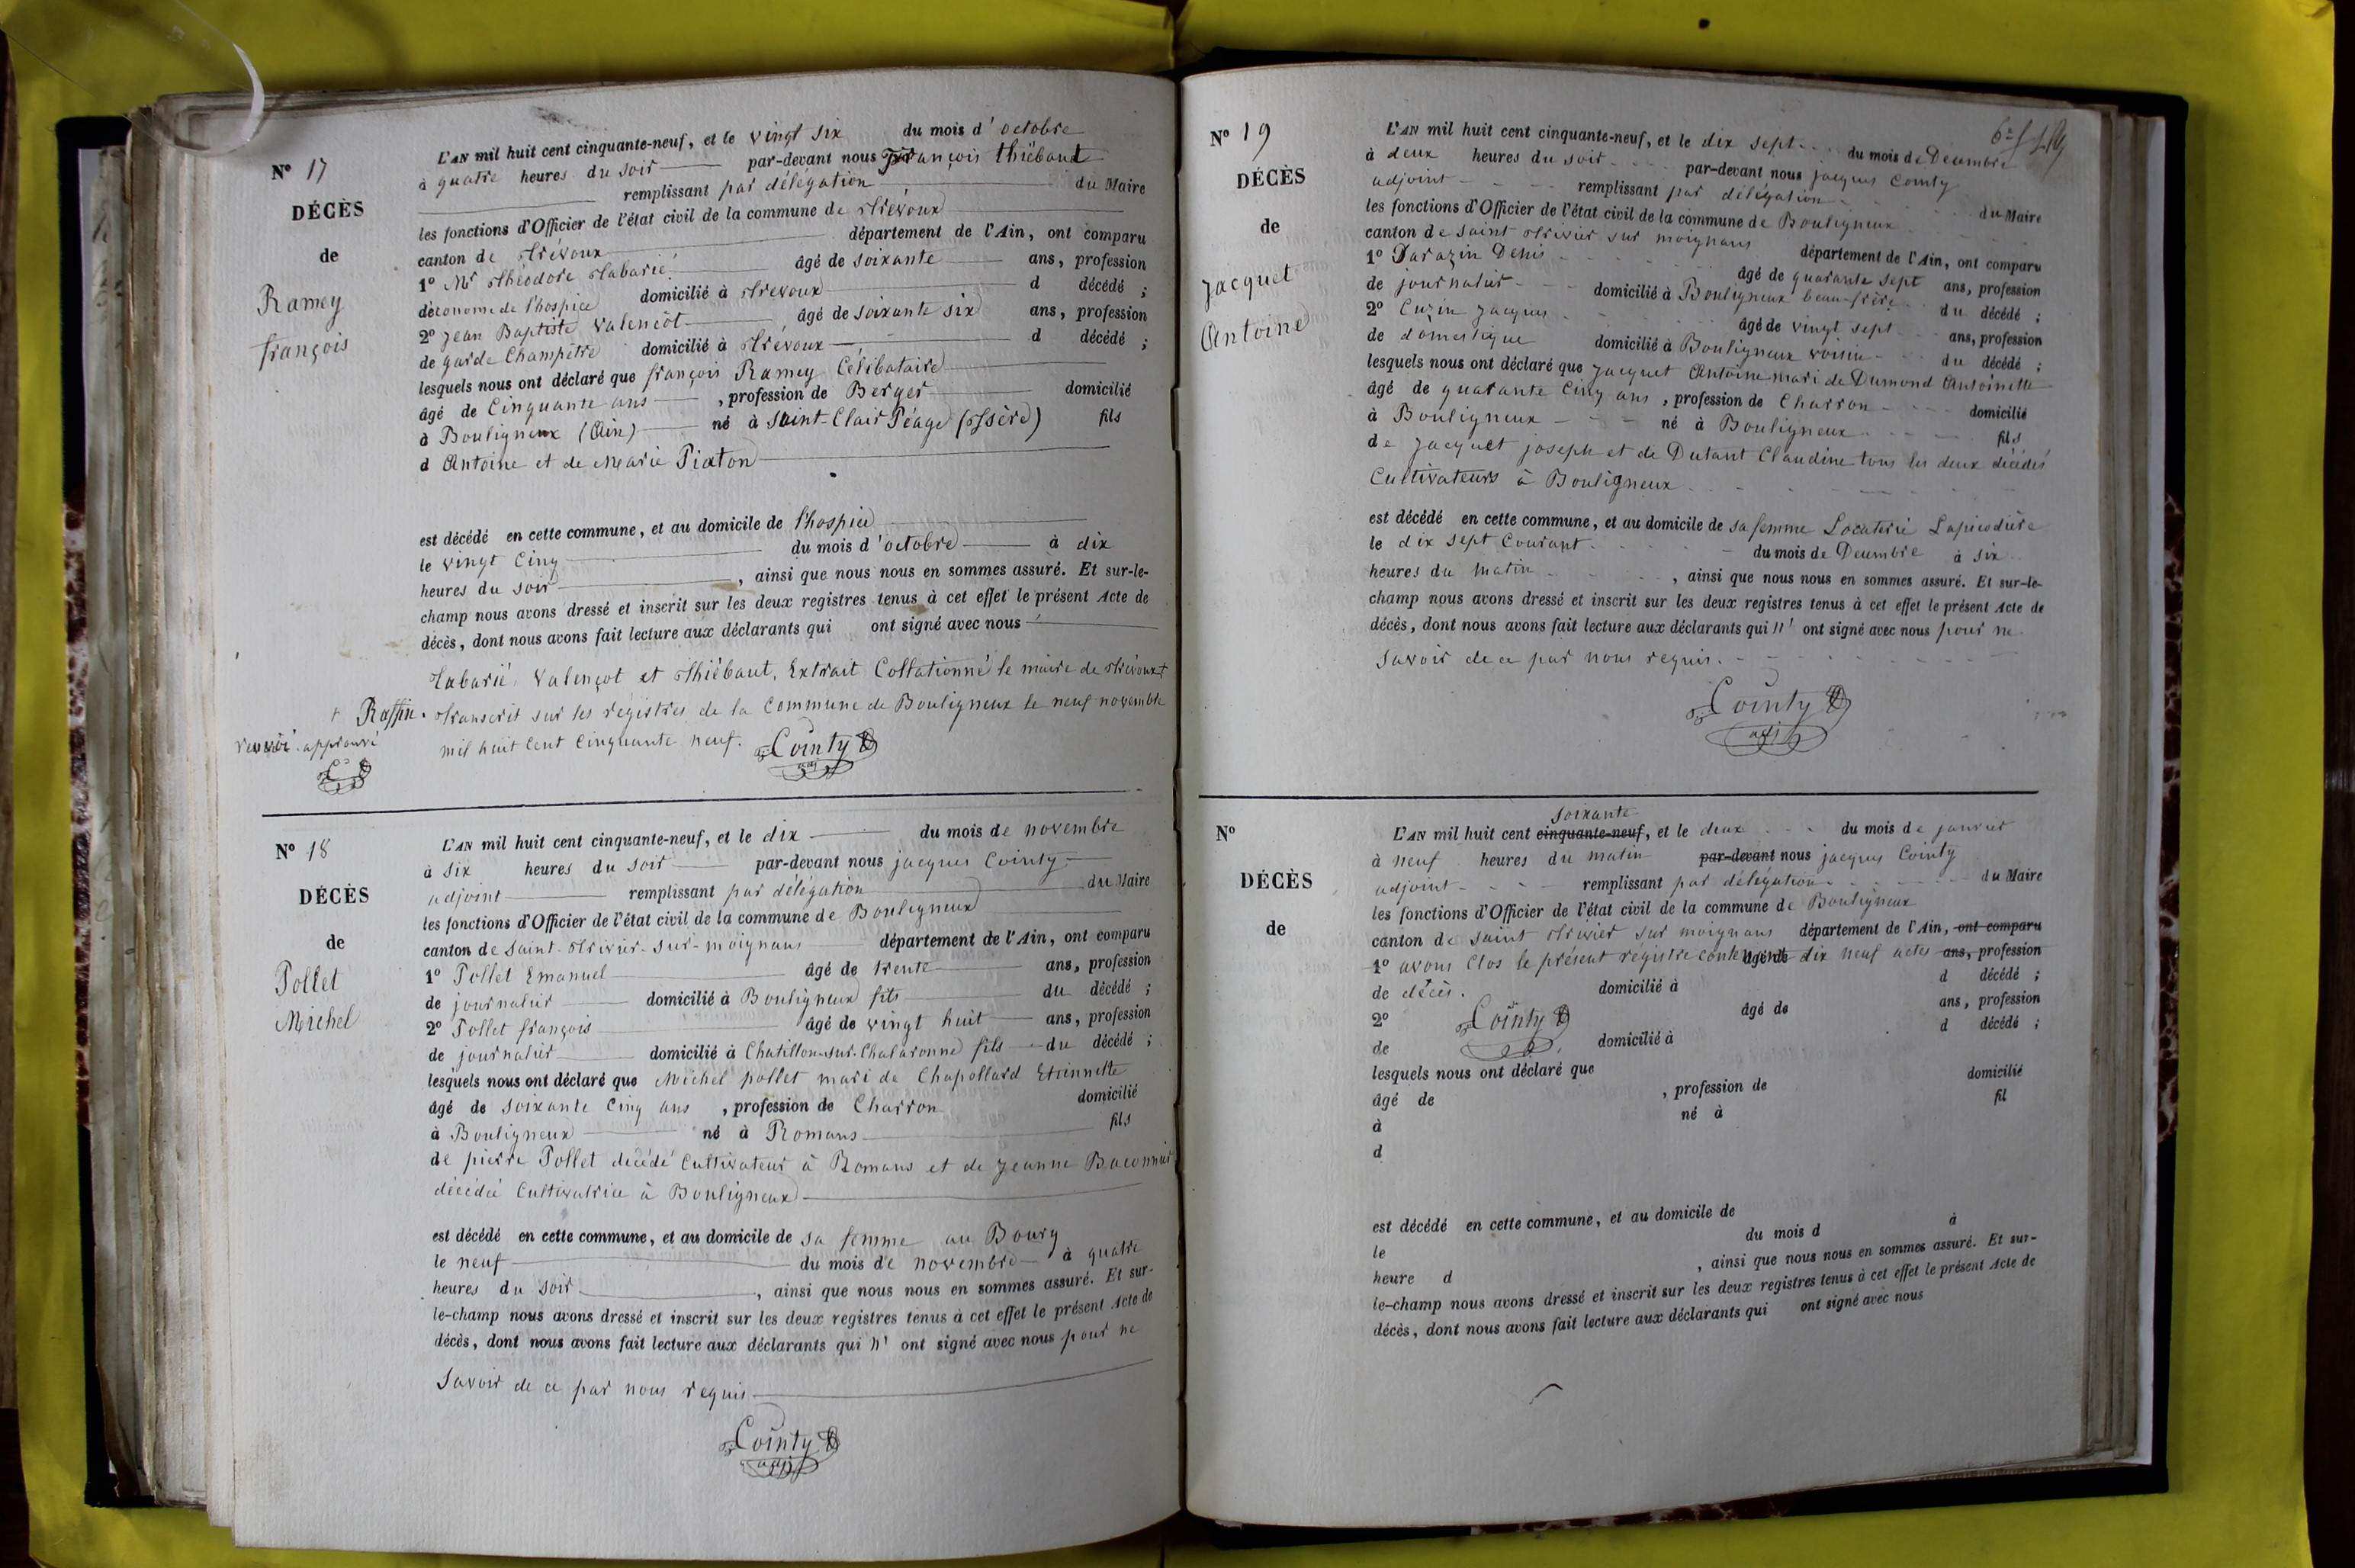 N° 17
DÉCÈS
de
Ramey
françois
L'AN mil huit cent cinquante-neuf, et le vingt six du mois d'octobre
à quatre heures du soir par-devant nous françois thiëbaud
remplissant par délégation du Maire
les fonctions d'Officier de l'état civil de la commune de Trévoux
canton de Trévoux département de l'Ain, ont comparu
1° Mr Théodore Tabarié âgé de soixante ans, profession
d'économe de l'hospice domicilié à Trévoux d décédé ;
2° Jean Baptiste Valençot âgé de soixante six ans, profession
de garde Champêtre domicilié à Trévoux d décédé ;
lesquels nous ont déclaré que françois Ramey Célibataire
âgé de Cinquante ans , profession de Berger domicilié
à Bouligneux (Ain) né à Saint-Clair Péage (Isère) fils
d Antoine et de Marie Piaton
est décédé en cette commune, et au domicile de l'hospice
le vingt Cinq du mois d'octobre à dix
heures du soir , ainsi que nous nous en sommes assuré. Et sur-le-
champ nous avons dressé et inscrit sur les deux registres tenus à cet effet le présent Acte de
décès, dont nous avons fait lecture aux déclarants qui ont signé avec nous
Tabarié, Valençot et Thiébaut, Extrait Collationné le maire de Trévoux +
+ Raffin. Transcrit sur les registres de la Commune de Bouligneux le neuf novembre
renvoi approuvé mil huit Cent Cinquante neuf. Cointy
adj
N° 18
DÉCÈS
de
Pollet
Michel
L'AN mil huit cent cinquante-neuf, et le dix du mois de novembre
à six heures du soir par-devant nous jacques Cointy
adjoint remplissant par délégation du Maire
les fonctions d'Officier de l'état civil de la commune de Bouligneux
canton de Saint-Trivier-sur-moignans département de l'Ain, ont comparu
1° Pollet Emanuel âgé de trente ans, profession
de journalier domicilié à Bouligneux fils du décédé ;
2° Pollet françois âgé de vingt huit ans, profession
de journalier domicilié à Chatillon-sur-Chalaronne fils du décédé ;
lesquels nous ont déclaré que Michel pollet mari de Chapollard Etiennette
âgé de soixante Cinq ans , profession de Charron domicilié
à Bouligneux né à Romans fils
de pierre Pollet décédé Cultivateur à Romans et de Jeanne Baconnier
décédée Cultivatrice à Bouligneux
est décédé en cette commune, et au domicile de sa femme au Bourg
le neuf du mois de novembre à quatre
heures du soir , ainsi que nous nous en sommes assuré. Et sur-
le-champ nous avons dressé et inscrit sur les deux registres tenus à cet effet le présent Acte de
décès, dont nous avons fait lecture aux déclarants qui n' ont signé avec nous pour ne
Savoir de ce par nous requis
Cointy
adj
N° 19
DÉCÈS
de
Jacquet
Antoine
L'AN mil huit cent cinquante-neuf, et le dix sept du mois de Décembre
à deux heures du soir par-devant nous jacques Cointy
adjoint remplissant par délégation du Maire
les fonctions d'Officier de l'état civil de la commune de Bouligneux
canton de Saint Trivier sur moignans département de l'Ain, ont comparu
1° Sarazin Denis âgé de quarante sept ans, profession
de journalier domicilié à Bouligneux beau-frère du décédé ;
2° Cuzin Jacques âgé de vingt sept ans, profession
de domestique domicilié à Bouligneux voisin du décédé ;
lesquels nous ont déclaré que Jacquet Antoine mari de Dumond Antoinette
âgé de quarante Cinq ans , profession de Charron domicilié
à Bouligneux né à Bouligneux fils
de Jacquet joseph et de Dutant Claudine tous les deux décédés
Cultivateurs à Bouligneux
est décédé en cette commune, et au domicile de sa femme Locaterie Lapicodière
le dix sept Courant du mois de Décembre à six
heures du matin , ainsi que nous nous en sommes assuré. Et sur-le-
champ nous avons dressé et inscrit sur les deux registres tenus à cet effet le présent Acte de
décès, dont nous avons fait lecture aux déclarants qui n' ont signé avec nous pour ne
savoir de ce par nous requis.
Cointy
adj
N°
DÉCÈS
de
soixante
L'AN mil huit cent cinquante-neuf, et le deux du mois de janvier
à neuf heures du matin par-devant nous jacques Cointy
adjoint remplissant par délégation du Maire
les fonctions d'Officier de l'état civil de la commune de Bouligneux
canton de Saint Trivier sur moignans département de l'Ain, ont comparu
1° avons Clos le présent registre contenant âgé de dix neuf actes ans, profession
de décès. domicilié à d décédé ;
2° Cointy âgé de ans, profession
de domicilié à d décédé ;
lesquels nous ont déclaré que
âgé de , profession de domicilié
à né à fil
d
est décédé en cette commune, et au domicile de
le du mois d à
heure d , ainsi que nous nous en sommes assuré. Et sur-
le-champ nous avons dressé et inscrit sur les deux registres tenus à cet effet le présent Acte de
décès, dont nous avons fait lecture aux déclarants qui ont signé avec nous